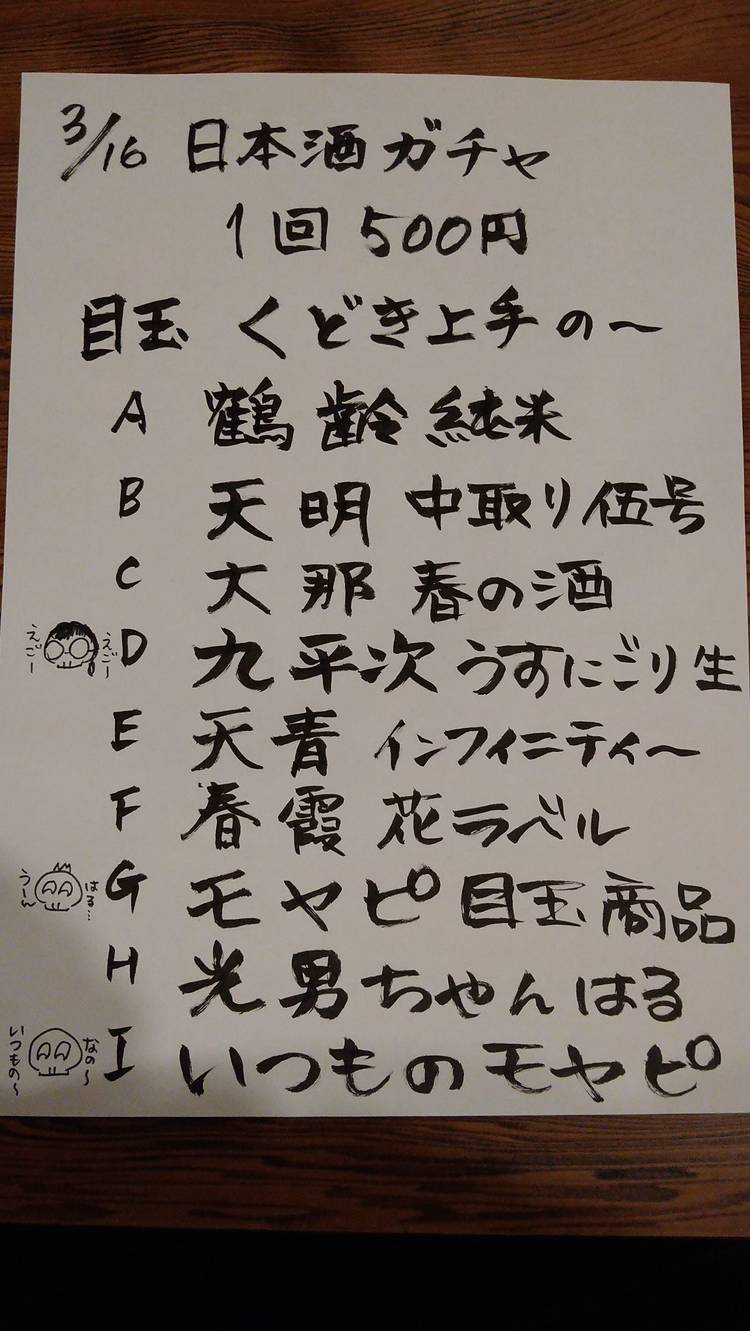 3/16 日本酒ガチャ
1回 500円
目玉 くどき上手の〜
A 鶴齢 純米
B 天明 中取り伍号
C 大那 春の酒
えごー えごー D 九平次 うすにごり生
E 天青 インフィニティ〜
F 春霞 花ラベル
うーん はる… G モヤピ目玉商品
H 光男ちゃんはる
いつもの〜 なの〜 I いつものモヤピ